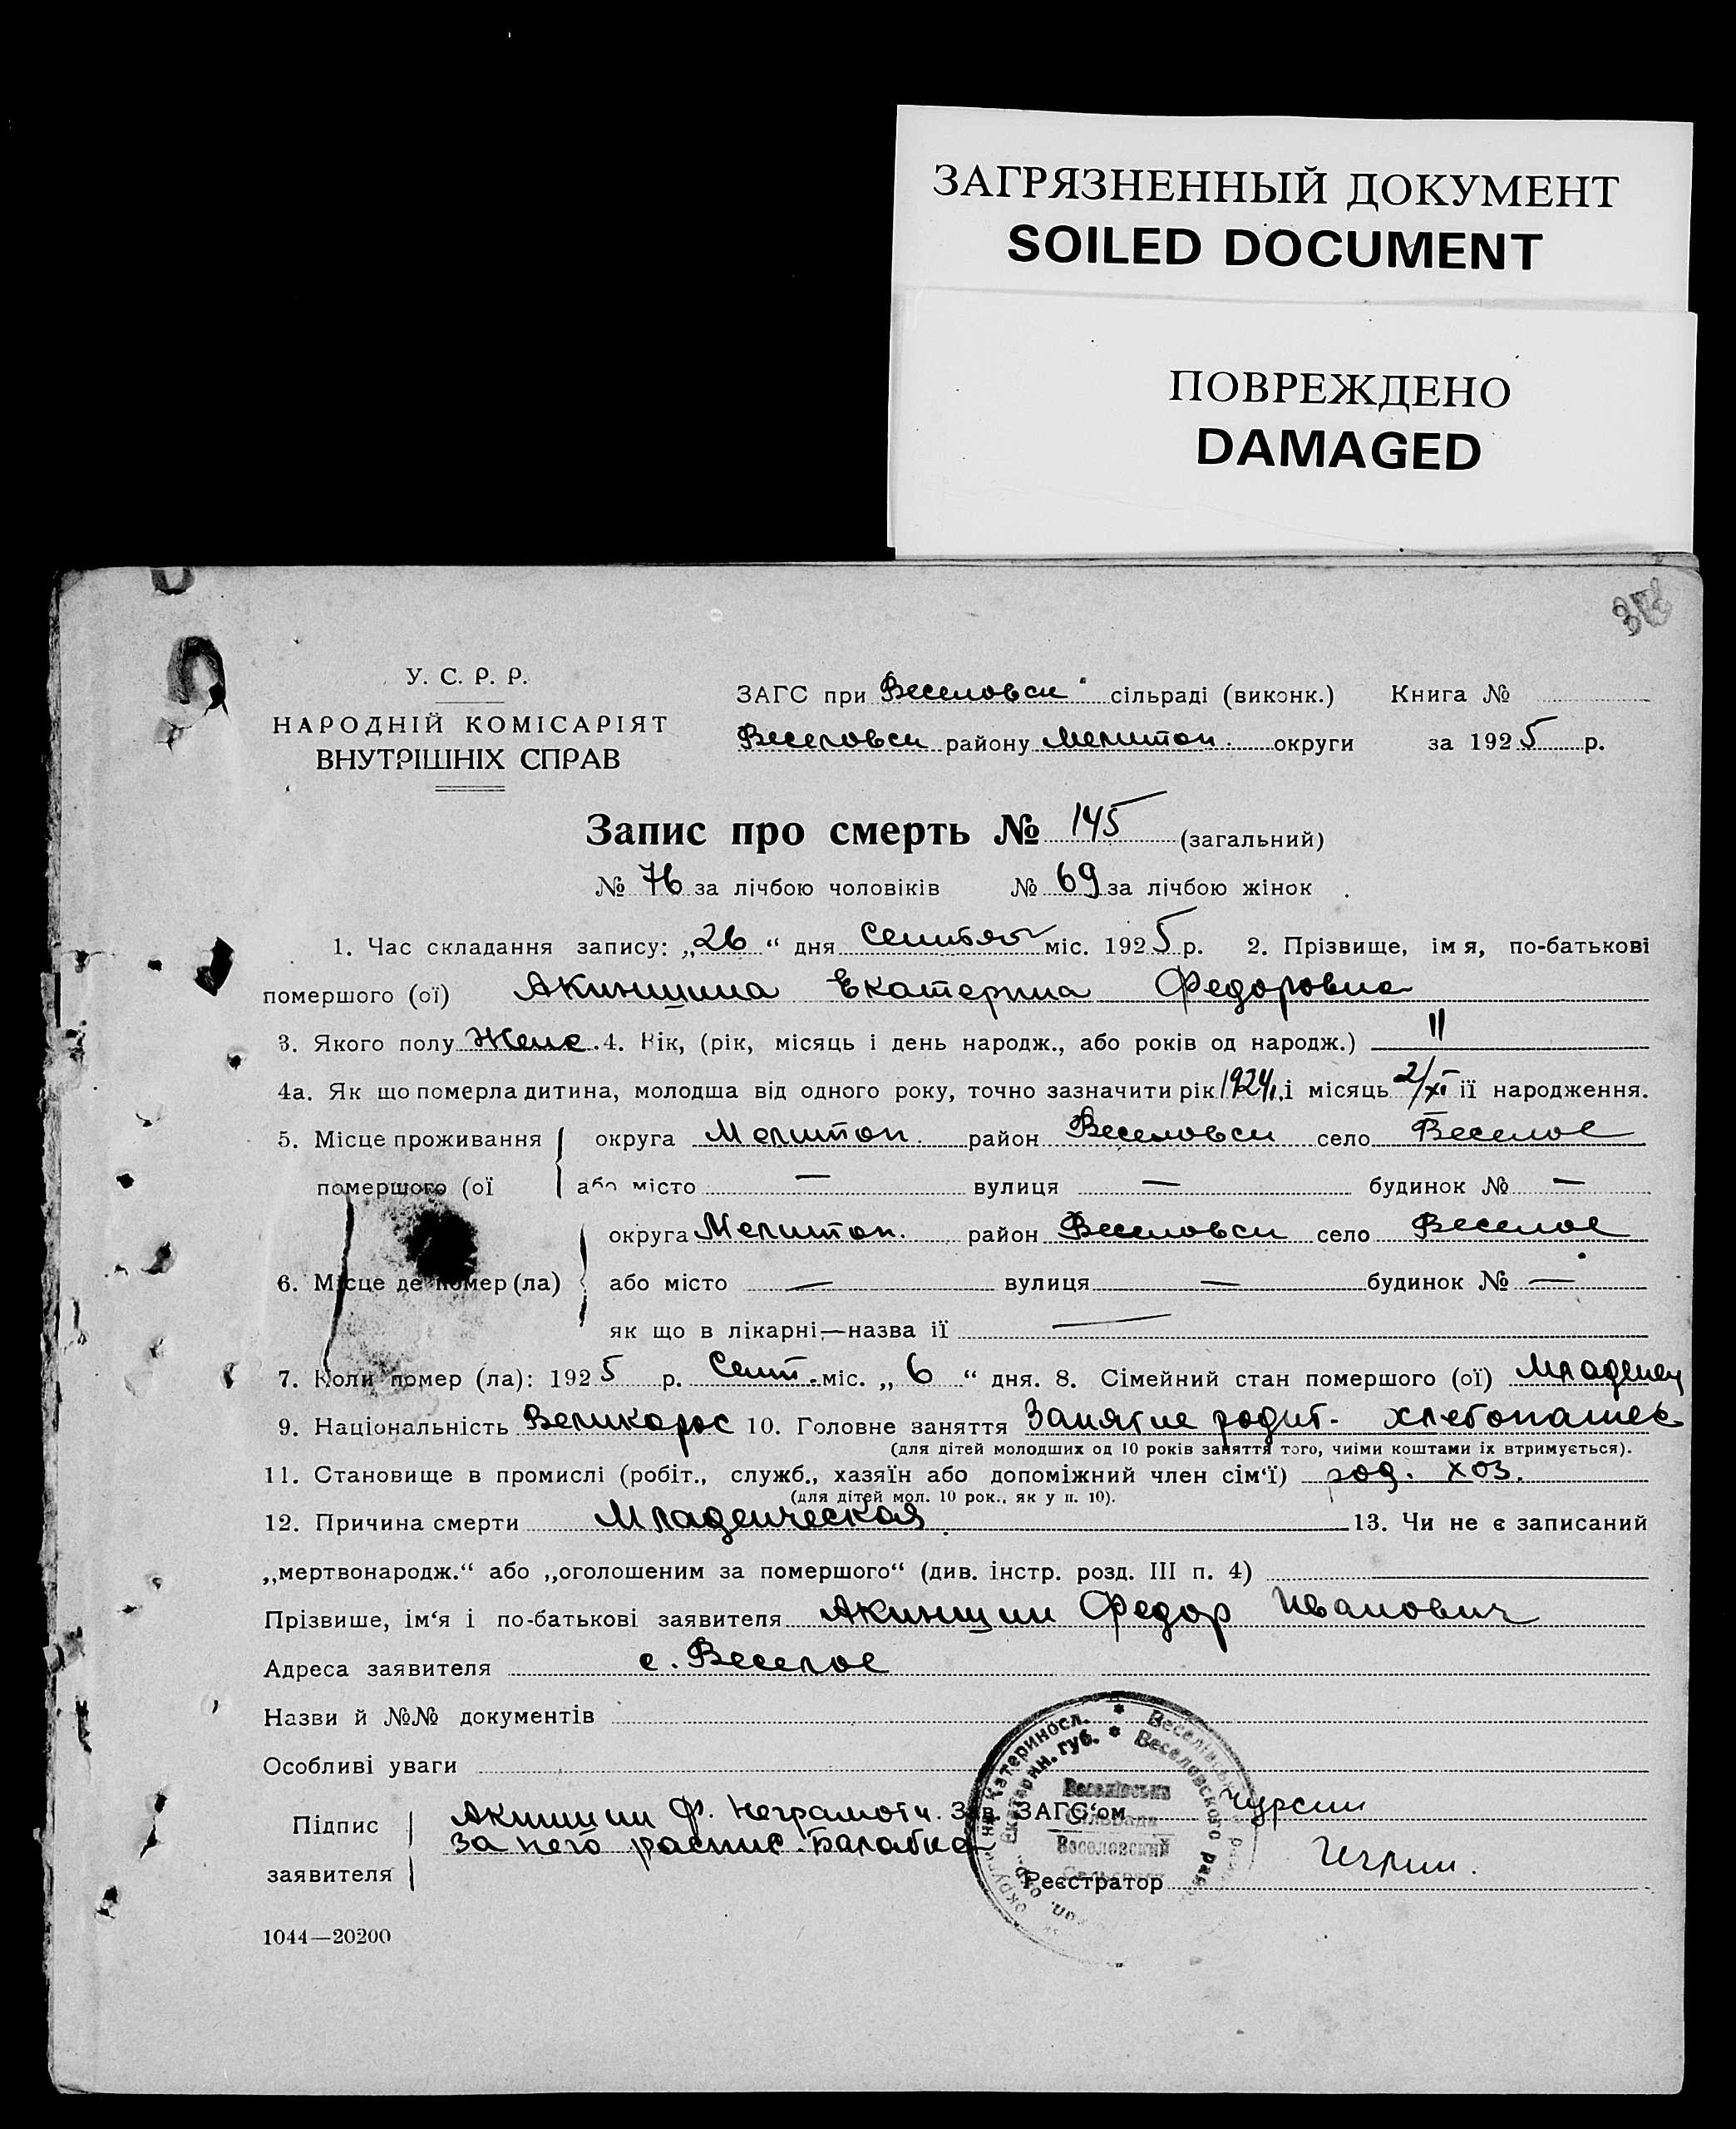 ЗАГРЯЗНЕННЫЙ ДОКУМЕНТ
SOILED DOCUMENT
ПОВРЕЖДЕНО
DAMAGED
У. С. Р. Р.
НАРОДНІЙ КОМІСАРІЯТ
ВНУТРІШНІХ СПРАВ
ЗАГС при Веселовск сільраді (виконк.) Книга №
Веселовск району Мелитоп. округи за 1925 р.
Запис про смерть № 145 (загальний)
№ 76 за лічбою чоловіків № 69 за лічбою жінок
1. Час складання запису: „26“ дня Сентяб міс. 1925 р. 2. Прізвище, імя, по-батькові
помершого (ої) Акиншина Екатерина Федоровна
3. Якого полу Женс. 4. Вік, (рік, місяць і день народж., або років од народж.) 11
4а. Як що померла дитина, молодша від одного року, точно зазначити рік 1924 і місяць 2/XI її народження.
5. Місце проживання округа Мелитоп. район Веселовск село Веселое
помершого (ої або місто — вулиця — будинок № —
округа Мелитоп. район Веселовск село Веселое
6. Місце де помер (ла) або місто — вулиця — будинок № —
як що в лікарні,—назва її —
7. Коли помер (ла): 1925 р. Сент. міс. „6“ дня. 8. Сімейний стан помершого (ої) Младенец
9. Національність Великорос 10. Головне заняття Занятие родит- хлебопашес
(для дітей молодших од 10 років заняття того, чиїми коштами їх втримується).
11. Становище в промислі (робіт., служб., хазяїн або допоміжний член сім‘ї) род. хоз.
(для дітей мол. 10 рок., як у п. 10).
12. Причина смерти Младенческая 13. Чи не є записаний
„мертвонародж.“ або „оголошеним за помершого“ (див. інстр. розд. III п. 4)
Прізвише, ім‘я і по-батькові заявителя Акиншин Федор Иванович
Адреса заявителя с. Веселое
Назви й №№ документів
Особливі уваги
Підпис заявителя Акиншин Ф. Неграмотн. Зав. ЗАГС‘ом Чурсин
за него распис. Балабка
Реєстратор
Катериносл. * Веселівськ
Екатерин. губ. * Веселовского рай
Веселівська
Сільрада
Веселовский
1044—20200